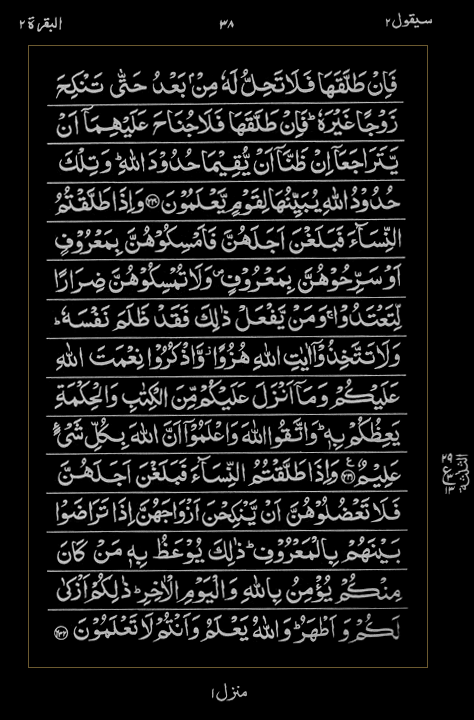 سيقول ٢ ٣٨ البقرة ٢
فَاِنْ طَلَّقَهَا فَلَا تَحِلُّ لَهٗ مِنْۢ بَعْدُ حَتّٰى تَنْكِحَ
زَوْجًا غَيْرَهٗ ؕ فَاِنْ طَلَّقَهَا فَلَا جُنَاحَ عَلَيْهِمَاۤ اَنْ
يَّتَرَاجَعَاۤ اِنْ ظَنَّاۤ اَنْ يُّقِيْمَا حُدُوْدَ اللّٰهِ ؕ وَتِلْكَ
حُدُوْدُ اللّٰهِ يُبَيِّنُهَا لِقَوْمٍ يَّعْلَمُوْنَ ﴿٢٣٠﴾ وَاِذَا طَلَّقْتُمُ
النِّسَآءَ فَبَلَغْنَ اَجَلَهُنَّ فَاَمْسِكُوْهُنَّ بِمَعْرُوْفٍ
اَوْ سَرِّحُوْهُنَّ بِمَعْرُوْفٍ ۪ وَلَا تُمْسِكُوْهُنَّ ضِرَارًا
لِّتَعْتَدُوْا ۚ وَمَنْ يَّفْعَلْ ذٰلِكَ فَقَدْ ظَلَمَ نَفْسَهٗ ؕ
وَلَا تَتَّخِذُوْۤا اٰيٰتِ اللّٰهِ هُزُوًا ۫ وَّاذْكُرُوْا نِعْمَتَ اللّٰهِ
عَلَيْكُمْ وَمَاۤ اَنْزَلَ عَلَيْكُمْ مِّنَ الْكِتٰبِ وَالْحِكْمَةِ
يَعِظُكُمْ بِهٖ ؕ وَاتَّقُوا اللّٰهَ وَاعْلَمُوْۤا اَنَّ اللّٰهَ بِكُلِّ شَىْءٍ
عَلِيْمٌ ﴿٢٣١﴾ ع وَاِذَا طَلَّقْتُمُ النِّسَآءَ فَبَلَغْنَ اَجَلَهُنَّ
فَلَا تَعْضُلُوْهُنَّ اَنْ يَّنْكِحْنَ اَزْوَاجَهُنَّ اِذَا تَرَاضَوْا
بَيْنَهُمْ بِالْمَعْرُوْفِ ؕ ذٰلِكَ يُوْعَظُ بِهٖ مَنْ كَانَ
مِنْكُمْ يُؤْمِنُ بِاللّٰهِ وَالْيَوْمِ الْاٰخِرِ ؕ ذٰلِكُمْ اَزْكٰى
لَكُمْ وَاَطْهَرُ ؕ وَاللّٰهُ يَعْلَمُ وَاَنْتُمْ لَا تَعْلَمُوْنَ ﴿٢٣٢﴾
منزل ١